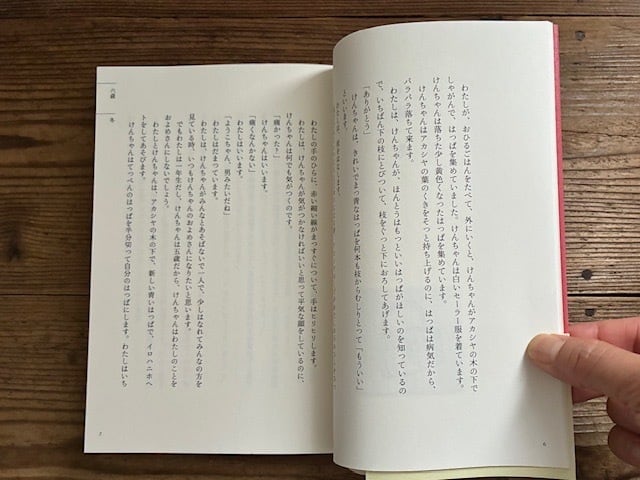 わたしが、おひるごはんをたべて、外にいくと、けんちゃんがアカシヤの木の下で
しゃがんで、はっぱを集めていました。けんちゃんは白いセーラー服を着ています。
けんちゃんは落ちた少し黄色くなったはっぱを集めています。
けんちゃんはアカシヤの葉のくきをそっと持ち上げるのに、はっぱは病気だから、
パラパラ落ちて来ます。
わたしは、けんちゃんが、ほんとうはもっといいはっぱがほしいのを知っているの
で、いちばん下の枝にとびついて、枝をぐっと下におろしてあげます。
「ありがとう」
けんちゃんは、きれいでまっ青なはっぱを何本も枝からむしりとって「もういい」
といいます。
6
六歳 冬
わたしの手のひらに、赤い細い線がまっすぐについて、手はヒリヒリします。
わたしは、けんちゃんが気がつかなければいいと思って平気な顔をしているのに、
けんちゃんは何でも気がつくのです。
「痛かった?」
けんちゃんはいいます。
「痛くなんかない」
わたしはいいます。
「ようこちゃん、男みたいだね」
わたしはだまっています。
わたしは、けんちゃんがみんなとあそばないで一人で、少しはなれてみんなの方を
見ている時、いつもけんちゃんのおよめさんになりたいと思います。
でもわたしは一年生だし、けんちゃんは五歳だから、けんちゃんはわたしのことを
およめさんにしないでしょう。
わたしとけんちゃんは、アカシヤの木の下で、新しい青いはっぱで、イロハニホヘ
トをしてあそびます。
けんちゃんはてっぺんのはっぱを半分切って自分のはっぱにします。わたしはいち
7